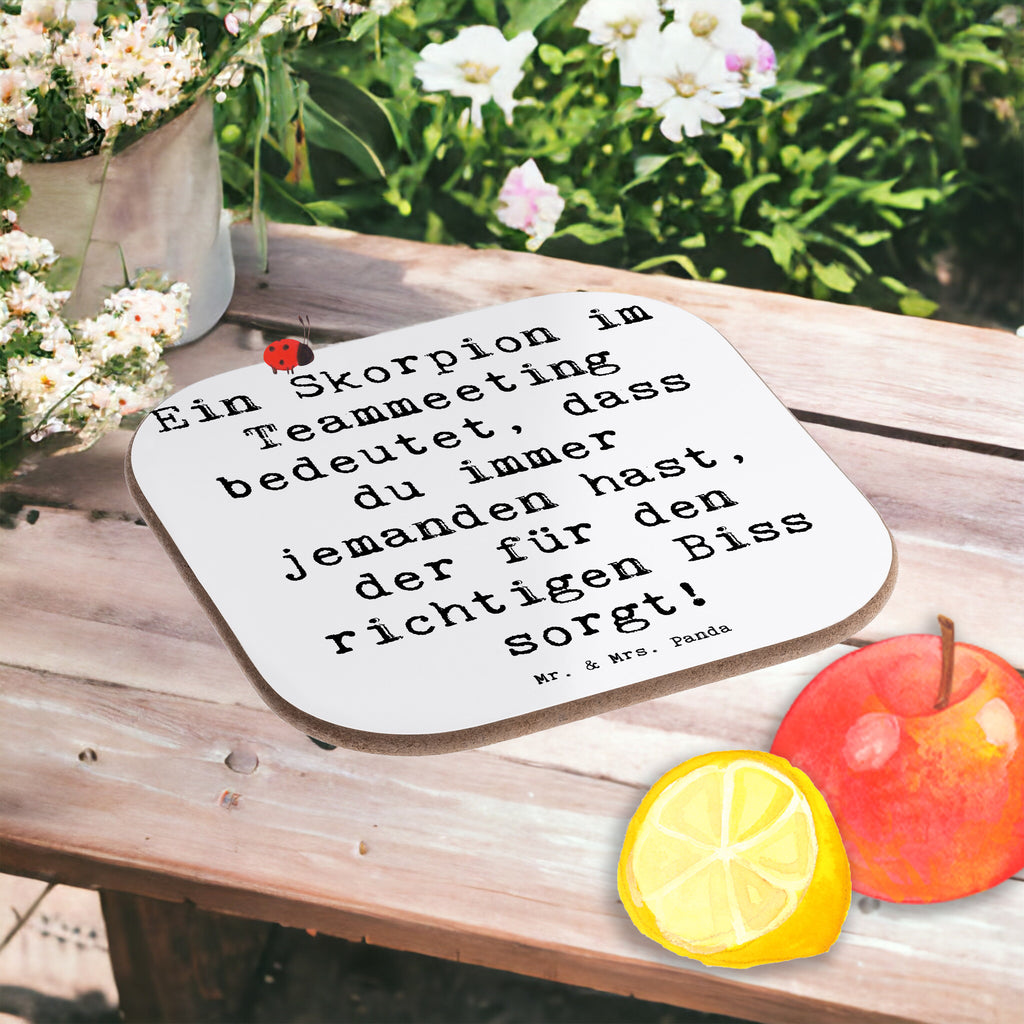 Ein Skorpion im
Teammeeting
bedeutet, dass
du immer
jemanden hast,
der für den
richtigen Biss
sorgt!
Mr. & Mrs. Panda